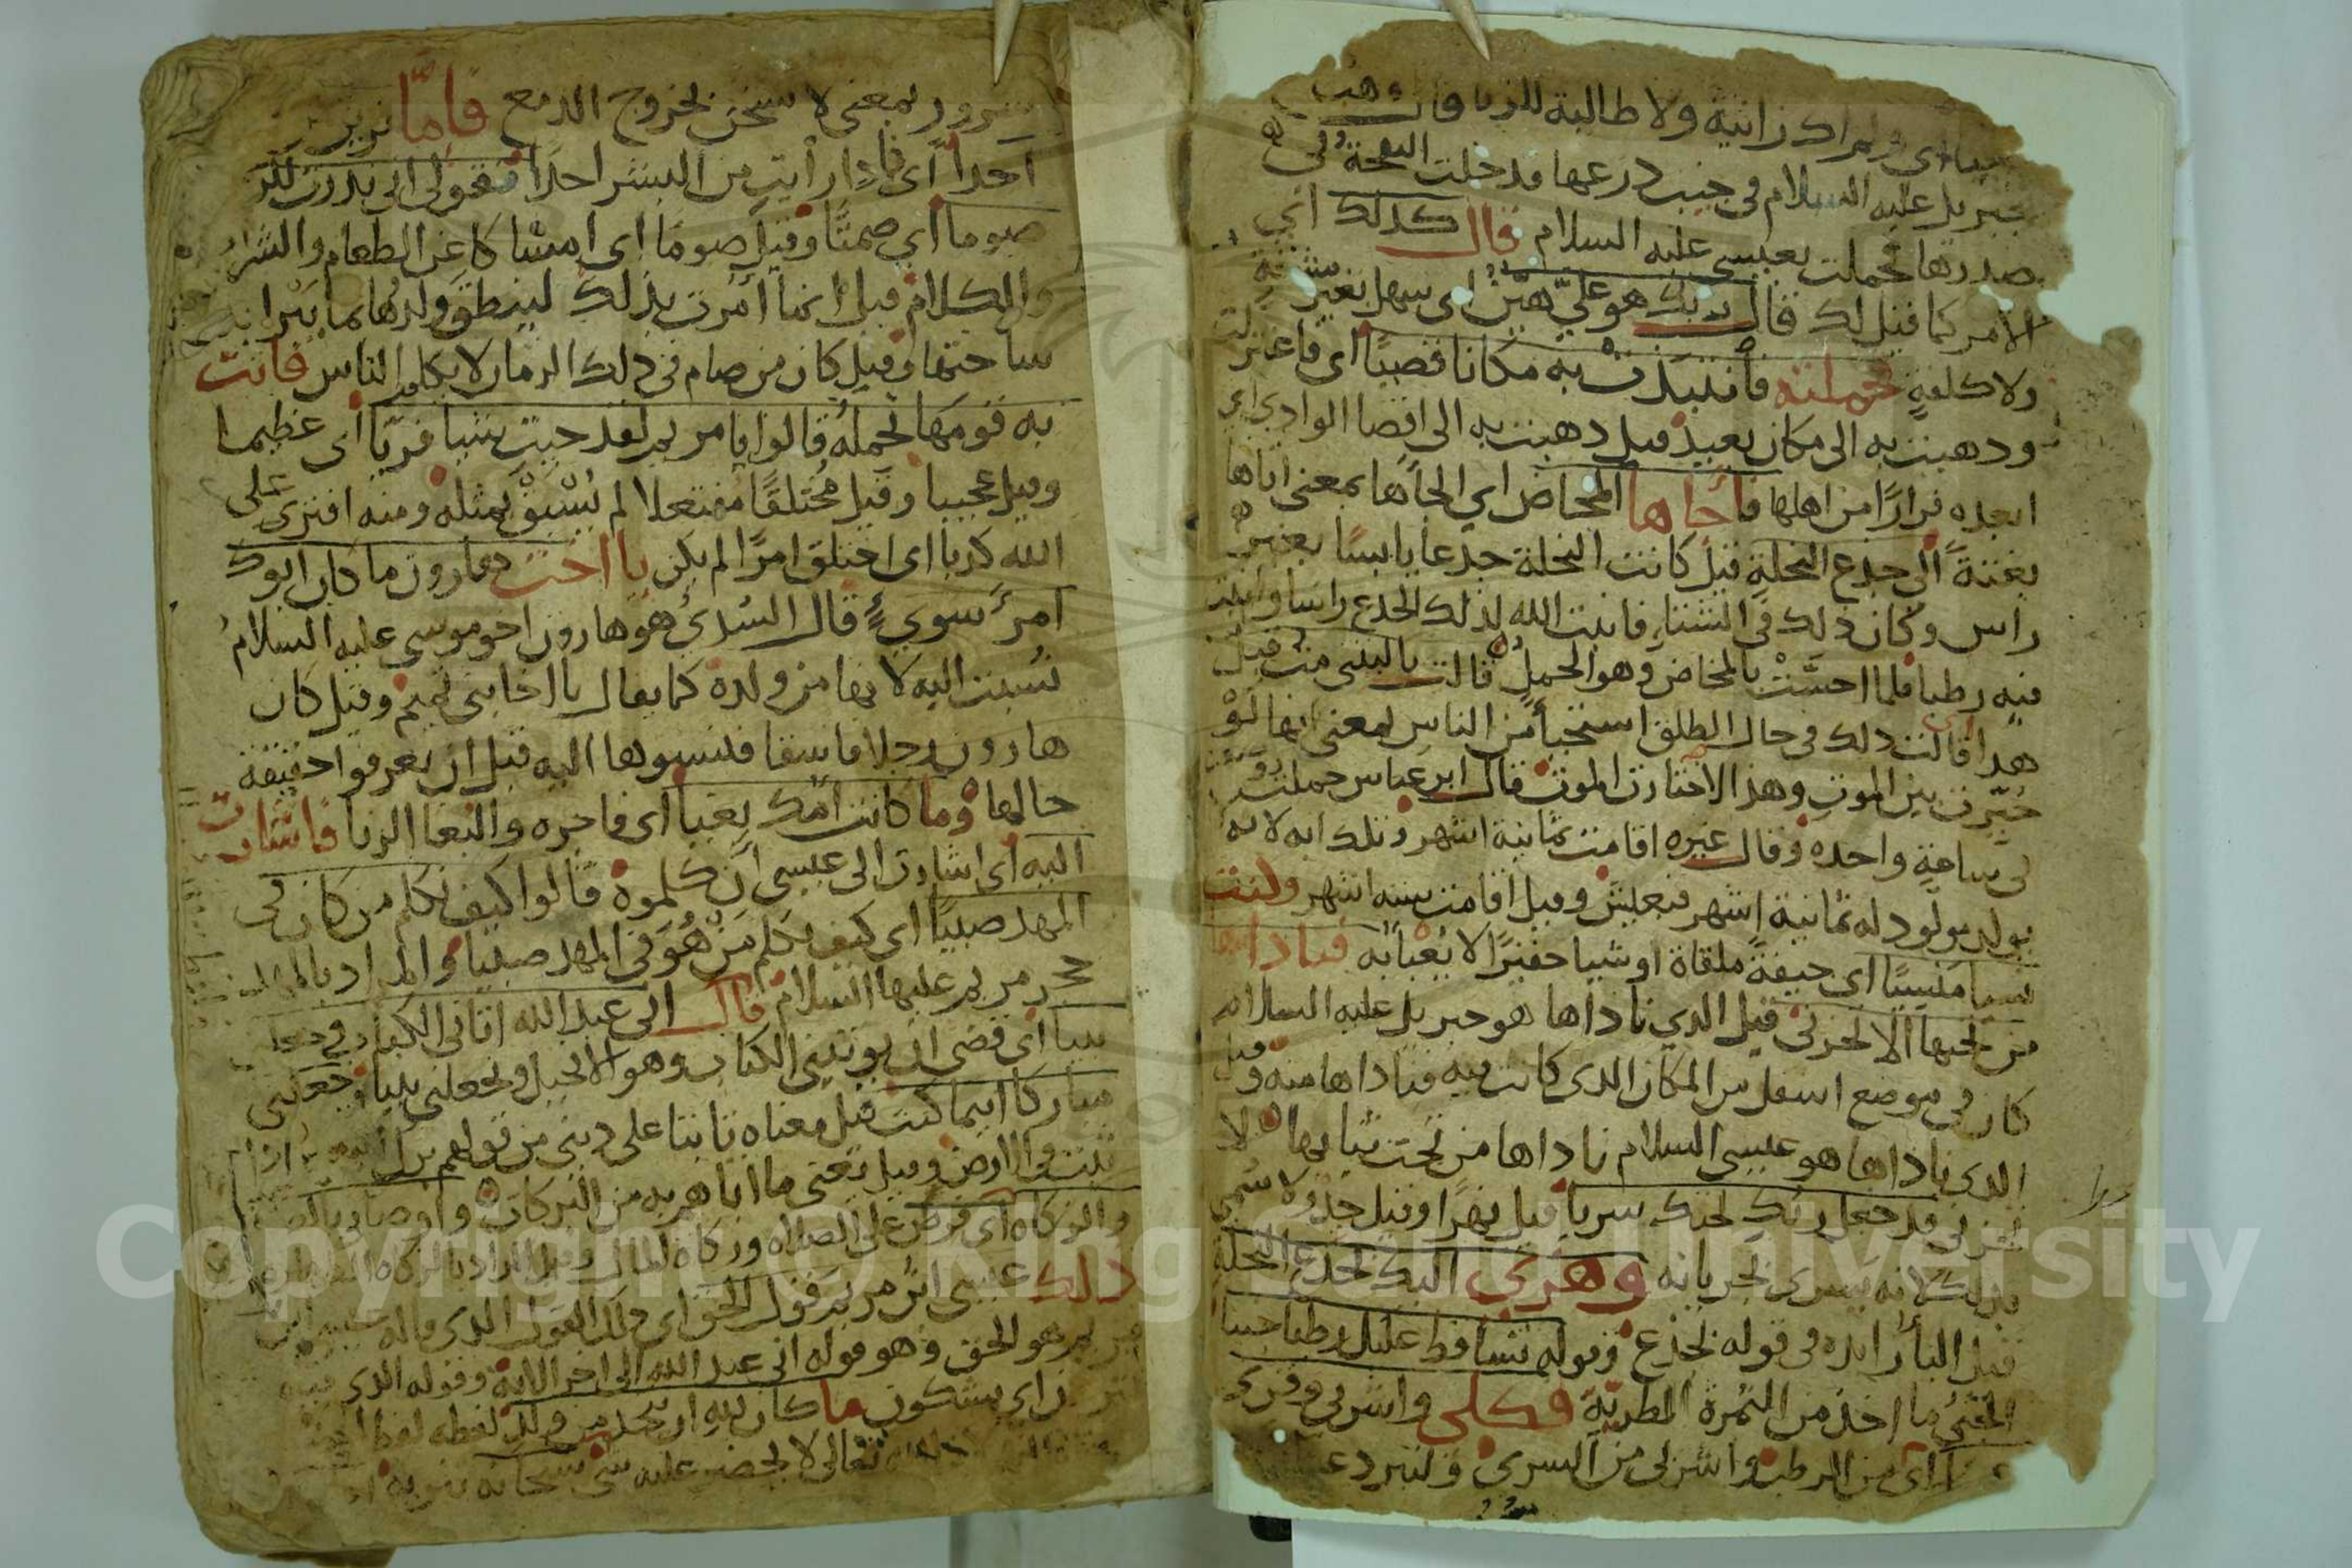 ولم اك زانية ولا طالبة للزنا قال وهب
جبريل عليه السلام في جيب درعها فدخلت النفخة في
صدرها فحملت بعيسى عليه السلام قال كذلك اي
الامر كما قيل لك قال ربك هو عليّ هيّن اى سهل بغير مشقة
ولا كلفةٍ فحملته فأنتبذت به مكانا قصيّا اى فاعتزلت
وذهبت به الى مكان بعيد قيل ذهبت به الى اقصا الوادي اي
ابعده فرارًا من اهلها فأجاها المخاض اي الجأها بمعنى اتاها
بغتةً الى جدع النخلةِ قيل كانت النخلة جدعا يابسًا بغير
راس وكان ذلك في الشتاء فانبت الله لذلك الجدع راسا وانبت
فيه رطبا فلما احسَّتْ بالمخاض وهو الحمل قالت ياليتني مت قبل
هدا اى قالت دلك في حال الطلق استحيأ من الناس بمعنى انها لوْ
خُيّرت بين الموت وهذا لاختارت الموت قال ابن عباس حملت
في ساعةٍ واحده وقال غيره اقامت ثمانية اشهر وتلك ايه لانه
يولد مولود له ثمانية اشهر فيعيش وقيل اقامت ستة اشهر وكنت
نسيا منسيًا اى جيفةً ملقاة او شيا حقيرًا لا يُعْبأ به فناداها
من تحتها الا تحزني قيل الذي ناداها هو جبريل عليه السلام
كان في موضع اسفل من المكان الدى كانت فيه فناداها منه وقيل
الدى ناداها هو عيسى السلام ناداها من تحت ثيابها الا
تحزني قد جعل ربك تحتك سريا قيل نهرًا وقيل جدولا سُمي
بذلك لانه يسرى بجريانه وهزي اليك بجدع النخلة
قيل البأ زايده في قوله بجذع وقوله تساقط عليك رطبا جنيا
الجَنيُ ما اخذ من الثمرة الطريّة فكلي واشربي وقري
اى من الرطب واشربى من السرى
سرور بمعنى لا سخن بخروج الدمع فإمّا ترين
احدا اى فاذا رأيتِ من البشر احدًا فقولى انى نذرت للر
صوما اي صمتًا وقيل صومًا اى امساكا عن الطعام والشرا
والكلام قيل انما اُمرت بذلك لينطق ولدُها بما يبْرا به
ساحتها وقيل كان من صام في دلك الزمان لا يكلم الناس فاتت
به قومَها تحمله قالوا يا مريم لقد جيتِ شيا فريّا اى عظيما
وقيل عجيبا وقيل مُختلقًا مفتعلا لم يُسْبَقْ بمثله ومنه افترى على
الله كدبا اى اختلق امرًا لم يكن يا اخت هارون ما كان ابوك
امرَأ سويٍ قال السُدي هو هارون اخو موسى عليه السلام
نُسبت اليه لانها من ولده كما يقال يا اخا بني تميم وقيل كان
هارون رجلا فاسقا فنسبوها اليه قبل ان يعرفوا حقيقة
حالها وما كانت امّك بغيا اى فاجره والبغا الزنا فاشارت
اليه اى اشارت الى عيسى ان كلموه قالوا كيف نكلم من كان في
المهد صبيا اى كيف نكلم مَنْ هُوَ في المهد صبيا والمراد بالمهد
حجر مريم عليها السلام قال انى عبد الله اتانى الكتاب وجعلني
نبيا اى قضى ان يوتيني الكتاب وهو الانجيل ويجعلني نبيا وجعلني
مباركا اينما كنت قيل معناه ثابتا على ديني من قولهم برك البعير اذا
ثبت في الارض وقيل يعنى ما اتاهم به من البركات واوصاني بالصلاة
والزكاه اى فرض على الصلاه وزكاه المال وقيل المراد بالزكاه الطهاره
ذلك عيسى ابن مريم قول الحق اى ذلك القول الذى قاله عيسى ابن
مريم هو الحق وهو قوله انى عبد الله الى اخر الاية وقوله الذى فيه
اى يشكون ما كان لله ان يتخذ من ولد لفظه لفظ
تعالى لا يحضر عليه شي سبحانه تنزيه
Copyright © King Saud University